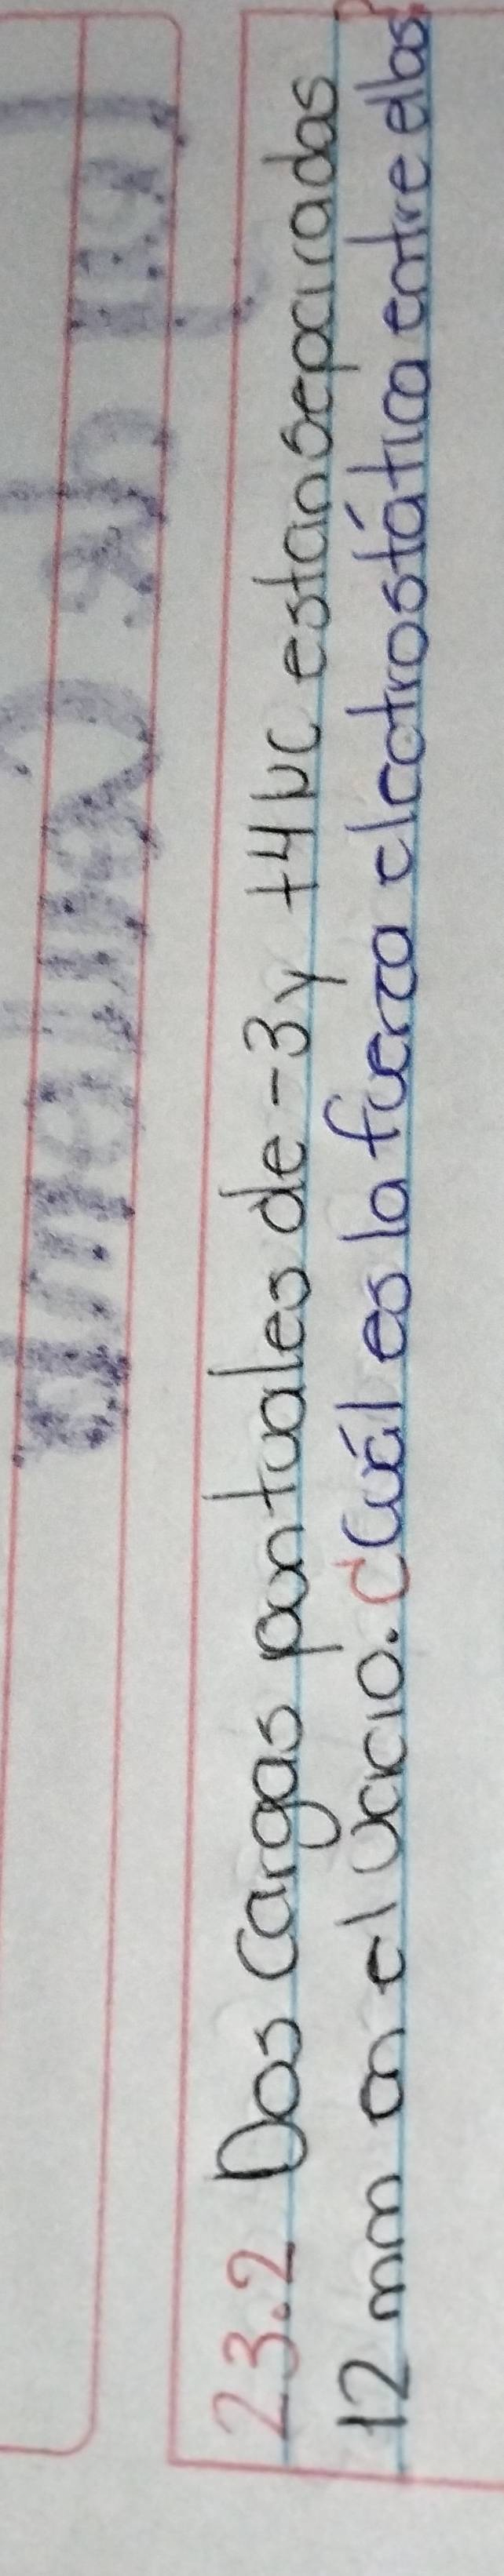 23.2 Dos Cargas puntuales de -3 y +4 μC estan separadas
12 mm en el vacio. ¿Cuál es la fuerza electrostática entre ellas?